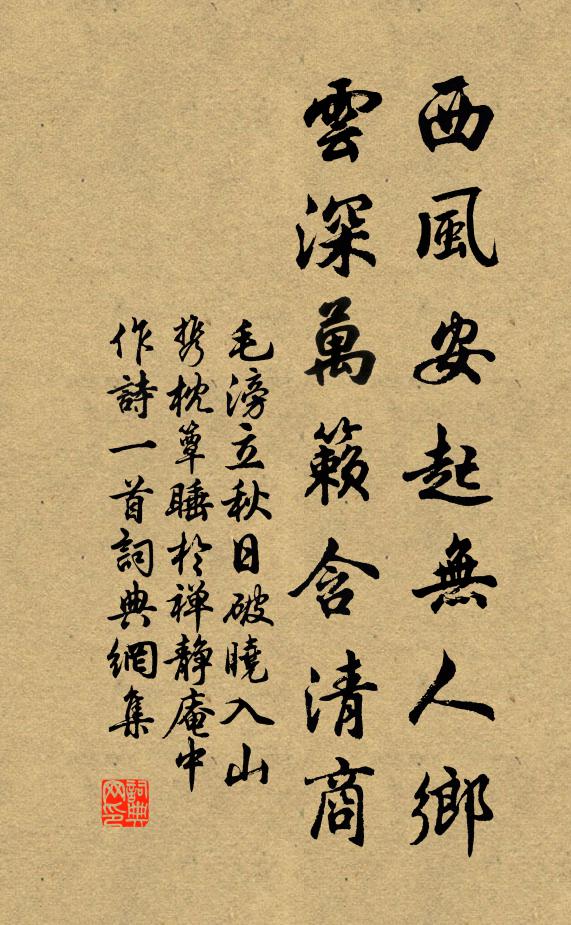 西風安起無人鄉
雲深萬籟含清商
毛滂立秋日破曉入山
携枕簟睡於禅靜庵中
作詩一首詞典網集
詞典网印